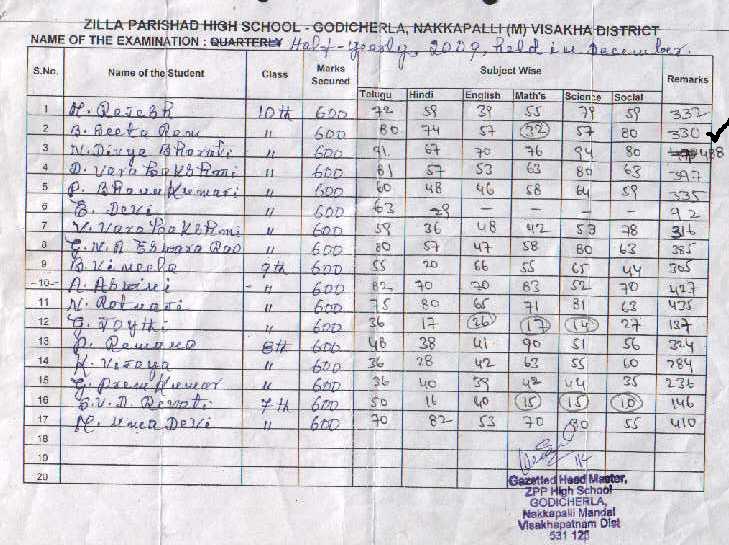 ZILLA PARISHAD HIGH SCHOOL - GODICHERLA, NAKKAPALLI (M) VISAKHA DISTRICT
NAME OF THE EXAMINATION : QUARTERLY Half-yearly, 2009, held in December.
S.No. Name of the Student Class Marks Secured Subject Wise Remarks
Telugu Hindi English Math's Science Social
1 K. Rajesh 10th 600 72 59 39 55 79 59 332
2 B. Seeta Ram " 600 80 74 57 32 57 80 330
3 N. Divya Bharati " 600 91 67 70 76 94 80 488
4 D. Vara Lakshmi " 600 81 57 53 63 80 63 397
5 P. Bhanu Kumari " 600 60 48 46 58 64 59 335
6 G. Devi " 600 63 29 - - - - 92
7 V. Vara Lakshmi " 600 59 36 48 42 53 78 316
8 C.N.R Eswara Rao " 600 80 57 47 58 80 63 385
9 B. Vineela 9th 600 55 20 66 55 65 44 305
10 A. Abwini " 600 82 70 70 83 52 70 427
11 N. Ratnavi " 600 75 80 65 71 81 63 435
12 G. Jaythi " 600 36 17 26 17 14 27 137
13 P. Ramana 8th 600 48 38 41 90 51 56 324
14 K. Vijaya " 600 36 28 42 63 55 60 284
15 G. Prem Kumar " 600 36 40 39 42 44 35 236
16 E.V.D. Revati 7th 600 50 16 40 15 15 10 146
17 M. Uma Devi " 600 70 82 53 70 80 55 410
18
19
20
Gazetted Head Master,
ZPP High School
GODICHERLA,
Nakkapalli Mandal
Visakhapatnam Dist
531 120